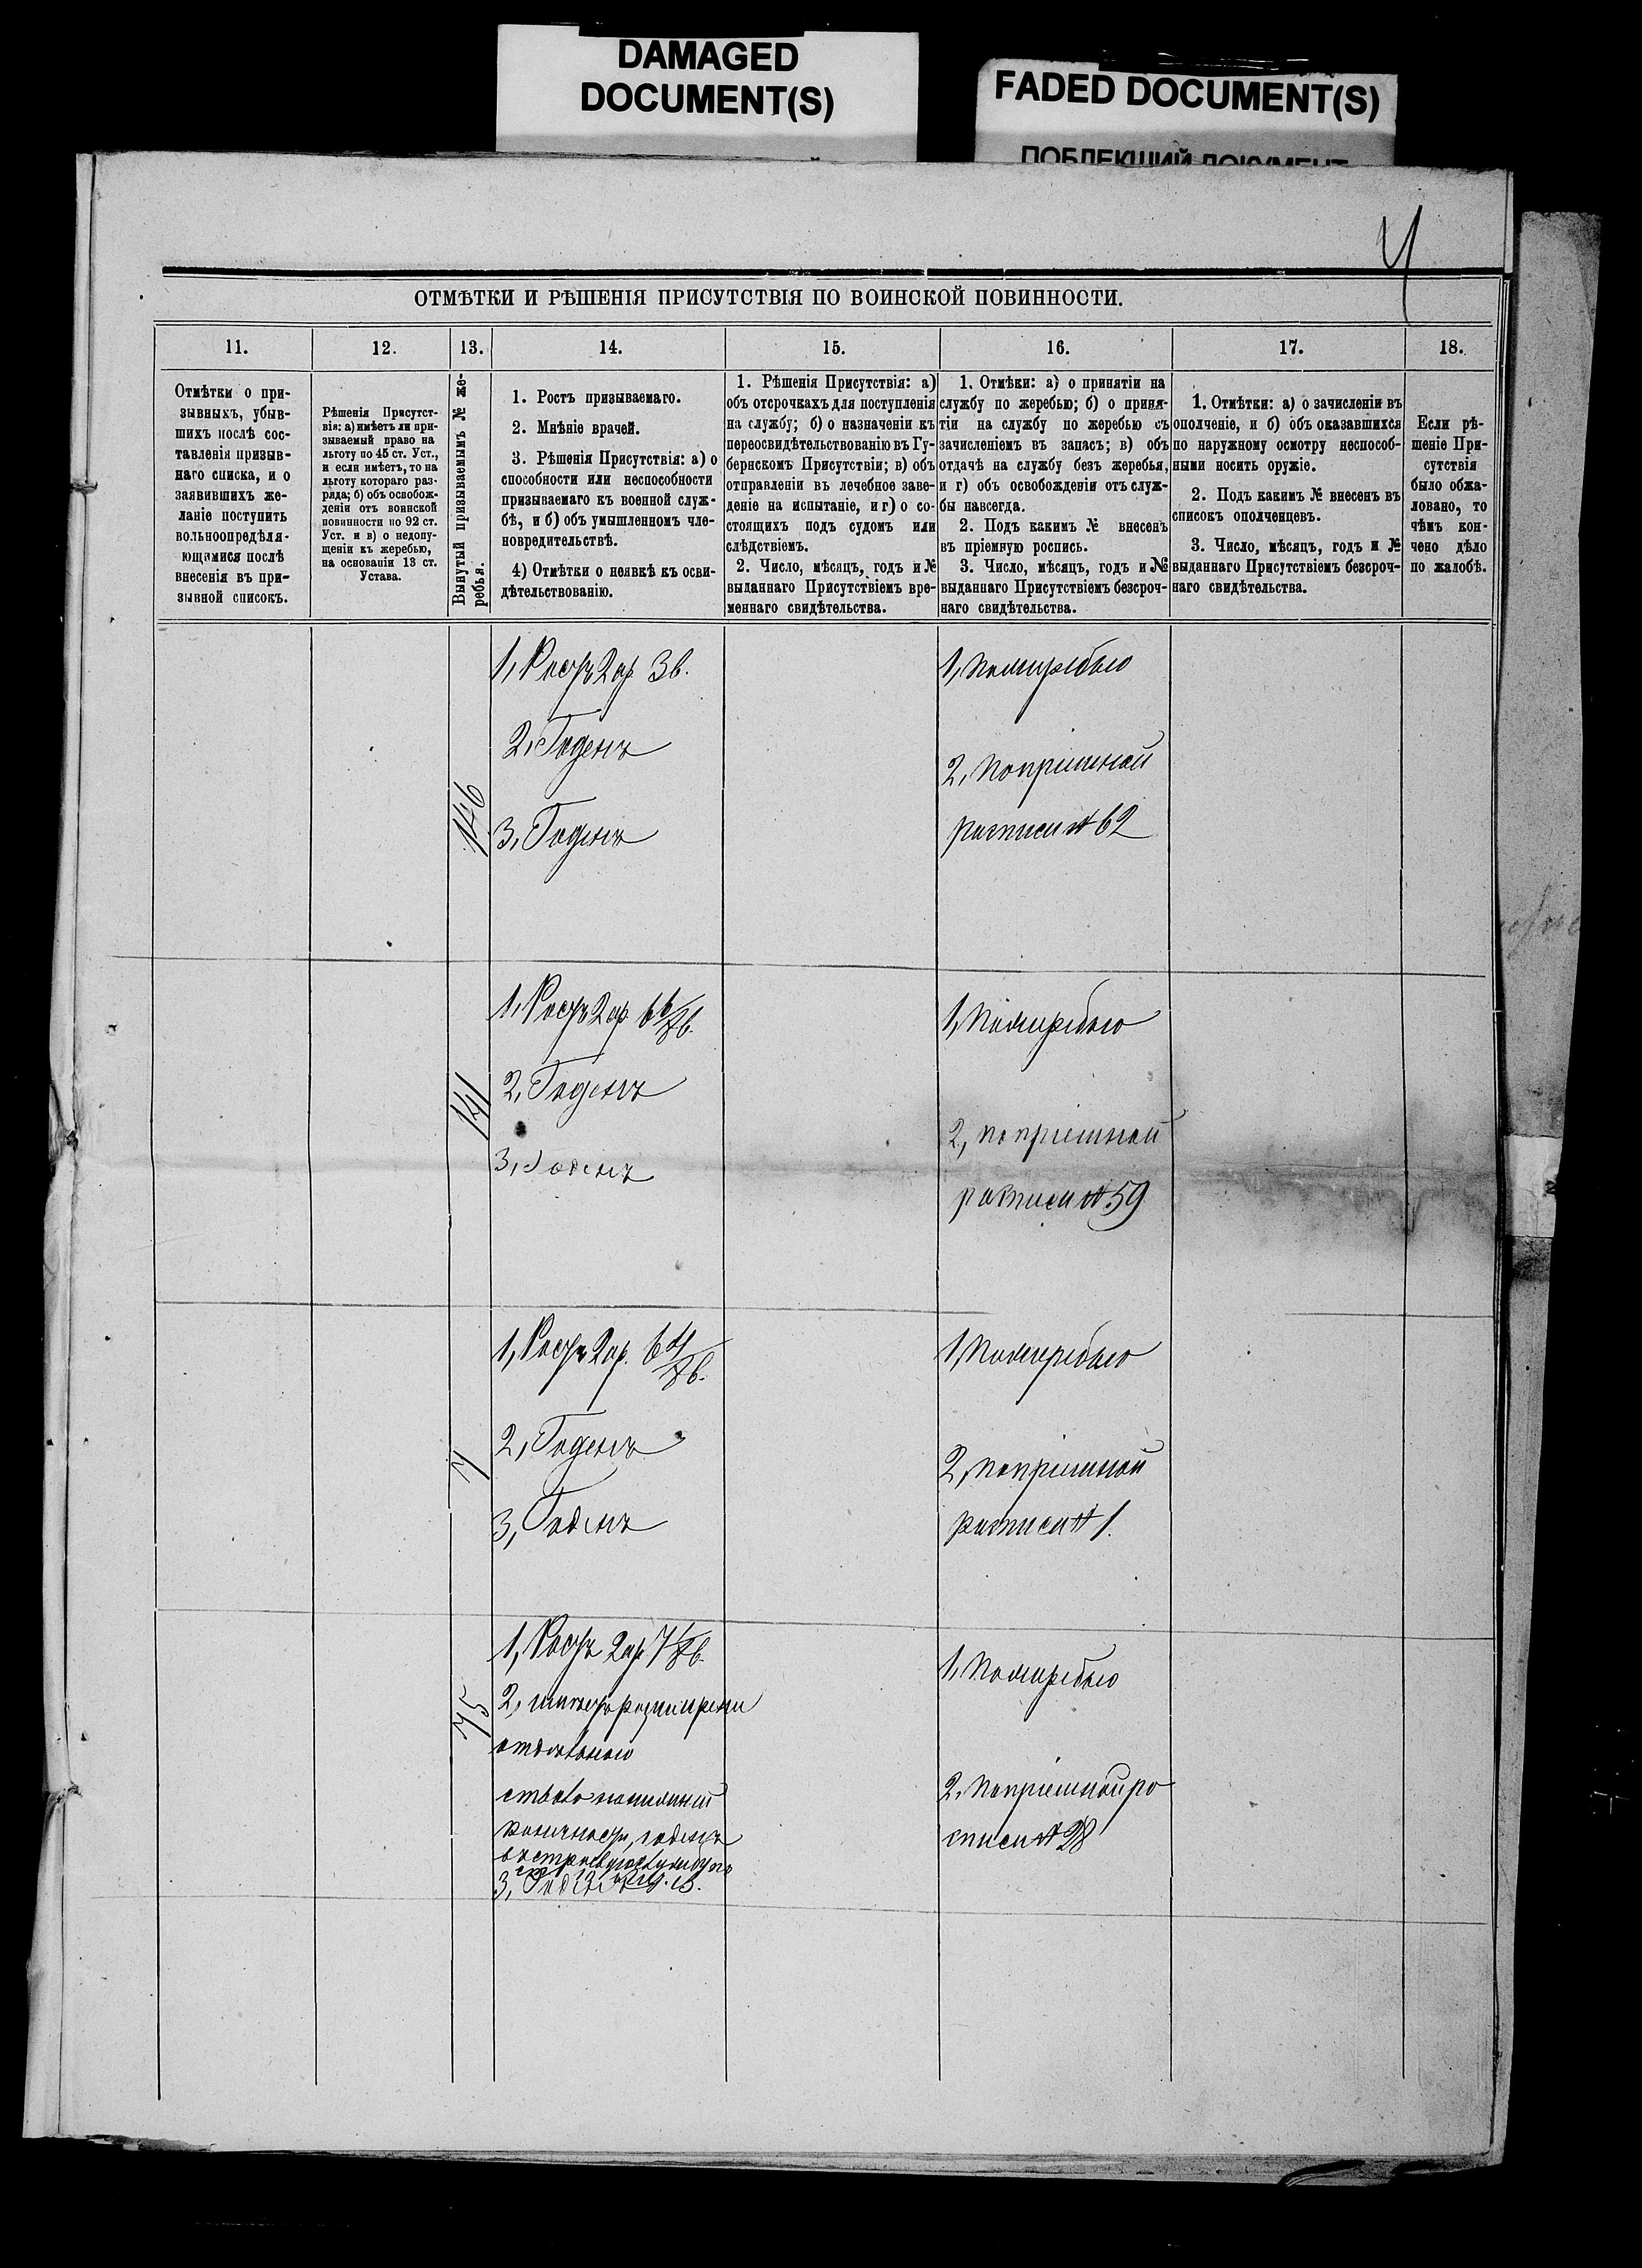 DAMAGED
DOCUMENT(S)
FADED DOCUMENT(S)
ПОБЛЕКШИЙ ДОКУМЕНТ
4
ОТМѢТКИ И РѢШЕНІЯ ПРИСУТСТВІЯ ПО ВОИНСКОЙ ПОВИННОСТИ.
11.
12.
13.
14.
15.
16.
17.
18.
Отмѣтки о при-
зывныхъ, убыв-
шихъ послѣ сос-
тавленія призыв-
наго списка, и о
заявившихъ же-
ланіе поступить
вольноопредѣля-
ющимися послѣ
внесенія въ при-
зывной списокъ.
Рѣшенія Присутст-
вія: а) имѣетъ ли при-
зываемый право на
льготу по 45 ст. Уст.,
и если имѣетъ, то на
льготу котораго раз-
ряда; б) объ освобож-
деніи отъ воинской
повинности по 92 ст.
Уст. и в) о недопу-
щеніи къ жеребью,
на основаніи 13 ст.
Устава.
Вынутый призываемымъ № же-
ребья.
1. Ростъ призываемаго.
2. Мнѣніе врачей.
3. Рѣшенія Присутствія: а) о
способности или неспособности
призываемаго къ военной служ-
бѣ, и б) объ умышленномъ чле-
новредительствѣ.
4) Отмѣтки о неявкѣ къ осви-
дѣтельствованію.
1. Рѣшенія Присутствія: а)
объ отсрочкахъ для поступленія
на службу; б) о назначеніи къ
переосвидѣтельствованію въ Гу-
бернскомъ Присутствіи; в) объ
отправленіи въ лечебное заве-
деніе на испытаніе, и г) о со-
стоящихъ подъ судомъ или
слѣдствіемъ.
2. Число, мѣсяцъ, годъ и №
выданнаго Присутствіемъ вре-
меннаго свидѣтельства.
1. Отмѣки: а) о принятіи на
службу по жеребью; б) о приня-
тіи на службу по жеребью съ
зачисленіемъ въ запасъ; в) объ
отдачѣ на службу безъ жеребья,
и г) объ освобожденіи отъ служ-
бы навсегда.
2. Подъ какимъ № внесенъ
въ пріемную роспись.
3. Число, мѣсяцъ, годъ и №
выданнаго Присутствіемъ безсроч-
наго свидѣтельства.
1. Отмѣтки: а) о зачисленіи въ
ополченіе, и б) объ оказавшихся
по наружному осмотру неспособ-
ными носить оружіе.
2. Подъ какимъ № внесенъ въ
списокъ ополченцевъ.
3. Число, мѣсяцъ, годъ и №
выданнаго Присутствіемъ безсроч-
наго свидѣтельства.
Если рѣ-
шеніе При-
сутствія
было обжа-
ловано, то
чѣмъ кон-
чено дѣло
по жалобѣ.
146
1, Ростъ 2 ар 3 в.
2, Годенъ
3, Годенъ
1, По жеребью
2, По пріемной
росписи № 62
141
1, Ростъ 2 ар 6 6/8 в.
2, Годенъ
3, Годенъ
1, По жеребью
2, по пріемной
росписи № 59
7
1, Ростъ 2 ар. 6 4/8 в.
2, Годенъ
3, Годенъ
1, По жеребью
2, по пріемной
росписи № 1.
75
1, Ростъ 2 ар 7 1/8 в.
2, имѣетъ расширени
3, Годенъ
1, По жеребью
2, По пріемной ро
списи № 28